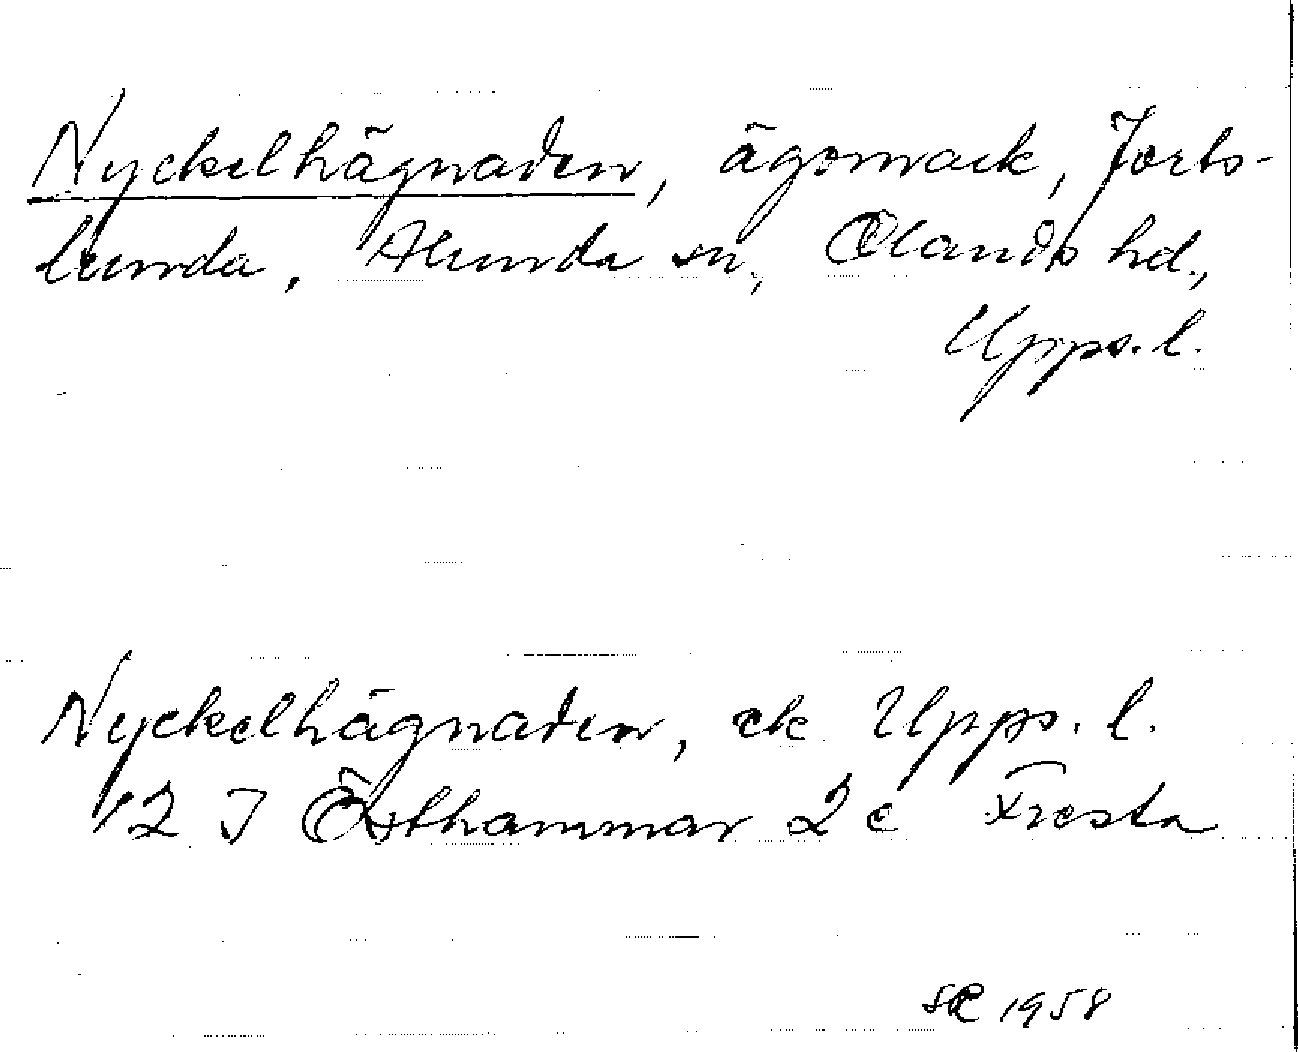 Nyckelhägnaden, ägomark, Forts-
lunda, Alunda sn, Olands hd.,
Upps. l.
Nyckelhägnaden, ek Upps. l.
12 I Östhammar 2 c Fresta
1958